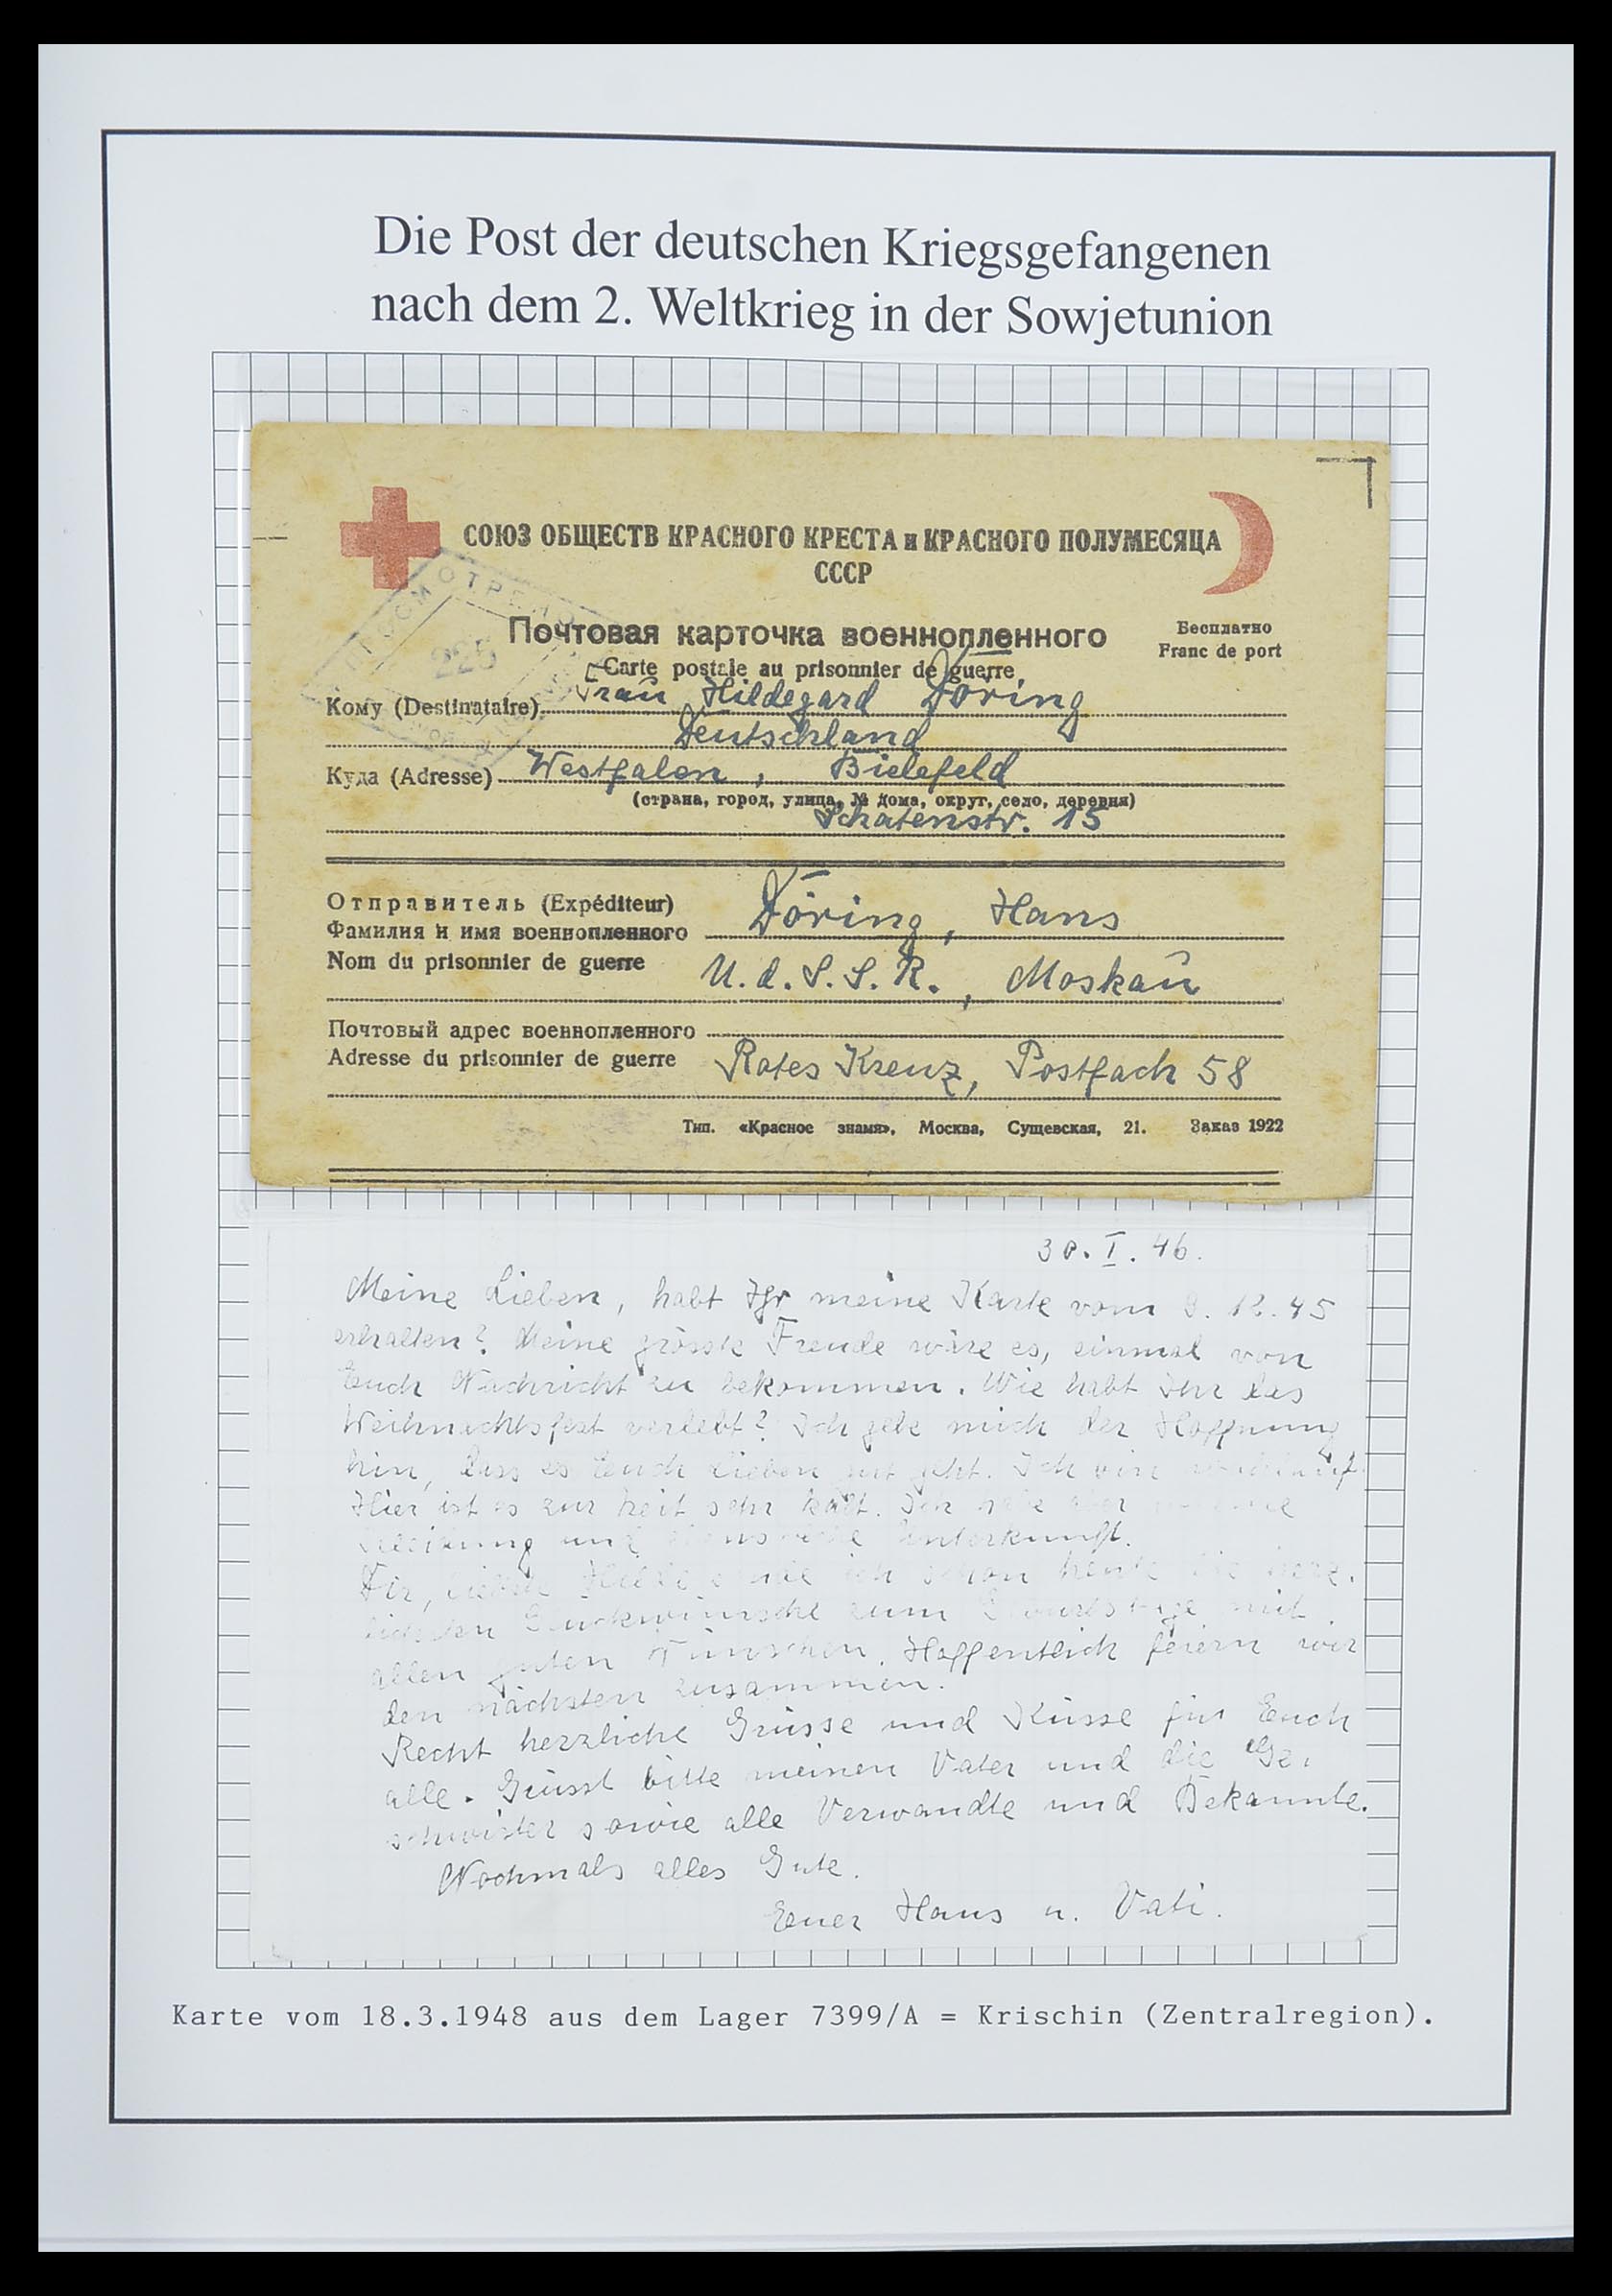 Die Post der deutschen Kriegsgefangenen
nach dem 2. Weltkrieg in der Sowjetunion
СОЮЗ ОБЩЕСТВ КРАСНОГО КРЕСТА и КРАСНОГО ПОЛУМЕСЯЦА
СССР
ПРОСМОТРЕНО
225
Почтовая карточка военнопленного
Бесплатно
Carte postale au prisonnier de guerre
Franc de port
Кому (Destinataire) Frau Hildegard Döring
Deutschland
Куда (Adresse) Westfalen, Bielefeld
(страна, город, улица, № дома, округ, село, деревня)
15
Отправитель (Expéditeur)
Фамилия и имя военнопленного Döring, Hans
Nom du prisonnier de guerre U.d.S.S.R., Moskau
Почтовый адрес военнопленного
Adresse du prisonnier de guerre Rotes Kreuz, Postfach 58
Тип. «Красное знамя», Москва, Сущевская, 21. Заказ 1922
30. I. 46.
Meine Lieben, habt Ihr meine Karte vom 9. 12. 45
erhalten? Meine grösste Freude wäre es, einmal von
Euch Nachricht zu bekommen. Wie habt Ihr das
Weihnachtsfest verlebt? Ich gebe mich der Hoffnung
hin, dass es Euch Lieben gut geht. Ich bin
Hier ist es zur Zeit sehr kalt. Ich habe aber
Kleidung und Unterkunft.
Dir, liebe ich schon heute die herz-
lichsten Glückwünsche zum Geburtstage mit
allen guten Wünschen. Hoffentlich feiern wir
den nächsten zusammen.
Recht herzliche Grüsse und Küsse für Euch
alle. Grüsst bitte meinen Vater und die Ge-
schwister sowie alle Verwandte und Bekannte.
Nochmals alles Gute.
Euer Hans u. Vati.
Karte vom 18.3.1948 aus dem Lager 7399/A = Krischin (Zentralregion).